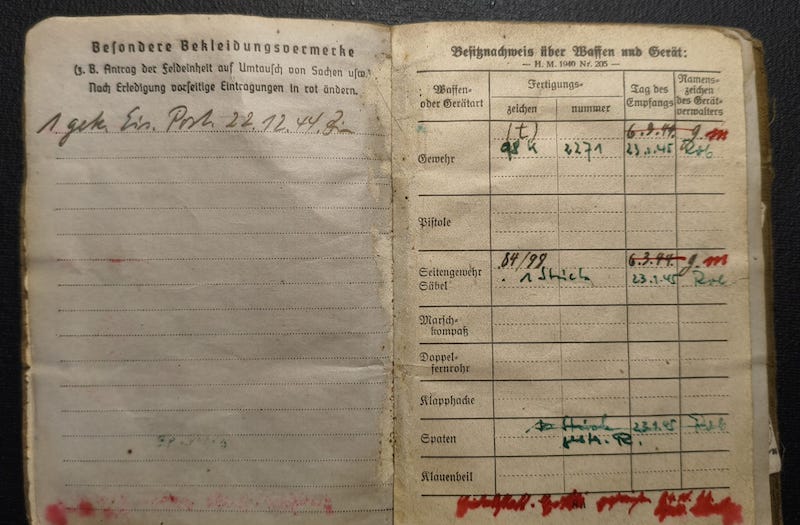 Besondere Bekleidungsvermerke
(z. B. Antrag der Feldeinheit auf Umtausch von Sachen usw.)
Nach Erledigung vorseitige Eintragungen in rot ändern.
1 gek. Eis. Port. 22.12.44.
Besitznachweis über Waffen und Gerät:
— H. M. 1940 Nr. 205 —
Waffen- oder Gerätart
Fertigungs-
zeichen
nummer
Tag des Empfangs
Namens-zeichen des Gerät-verwalters
Gewehr
(t) 6.9.44. g. m
98 K 2271 23.1.45 Rob
Pistole
Seitengewehr Säbel
84/98 6.3.44. g. m
1 Stück 23.1.45 Rob
Marsch-kompaß
Doppel-fernrohr
Klapphacke
Spaten
Stück 23.1.45 Rob
gestr. R.
Klauenbeil